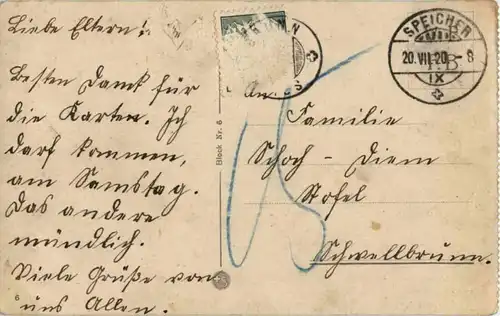 Liebe Eltern!
Besten Dank für
die Karten. Ich
darf kommen,
am Samstag.
Das andere
mündlich.
Viele Grüße von
uns Allen.
6
Block Nr. 6
SPEICHER
20.VII.20. 8
IX
Familie
Schoch - Diem
Stofel
Schwellbrunn.